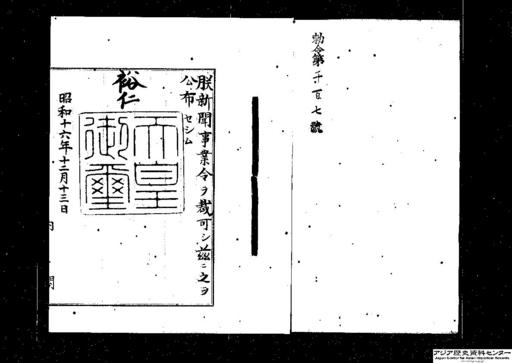 勅令第千百七號
朕新聞事業令ヲ裁可シ茲ニ之ヲ
公布セシム
裕仁
天皇
御璽
昭和十六年十二月十三日
内閣
アジア歴史資料センター
Japan Center for Asian Historical Records